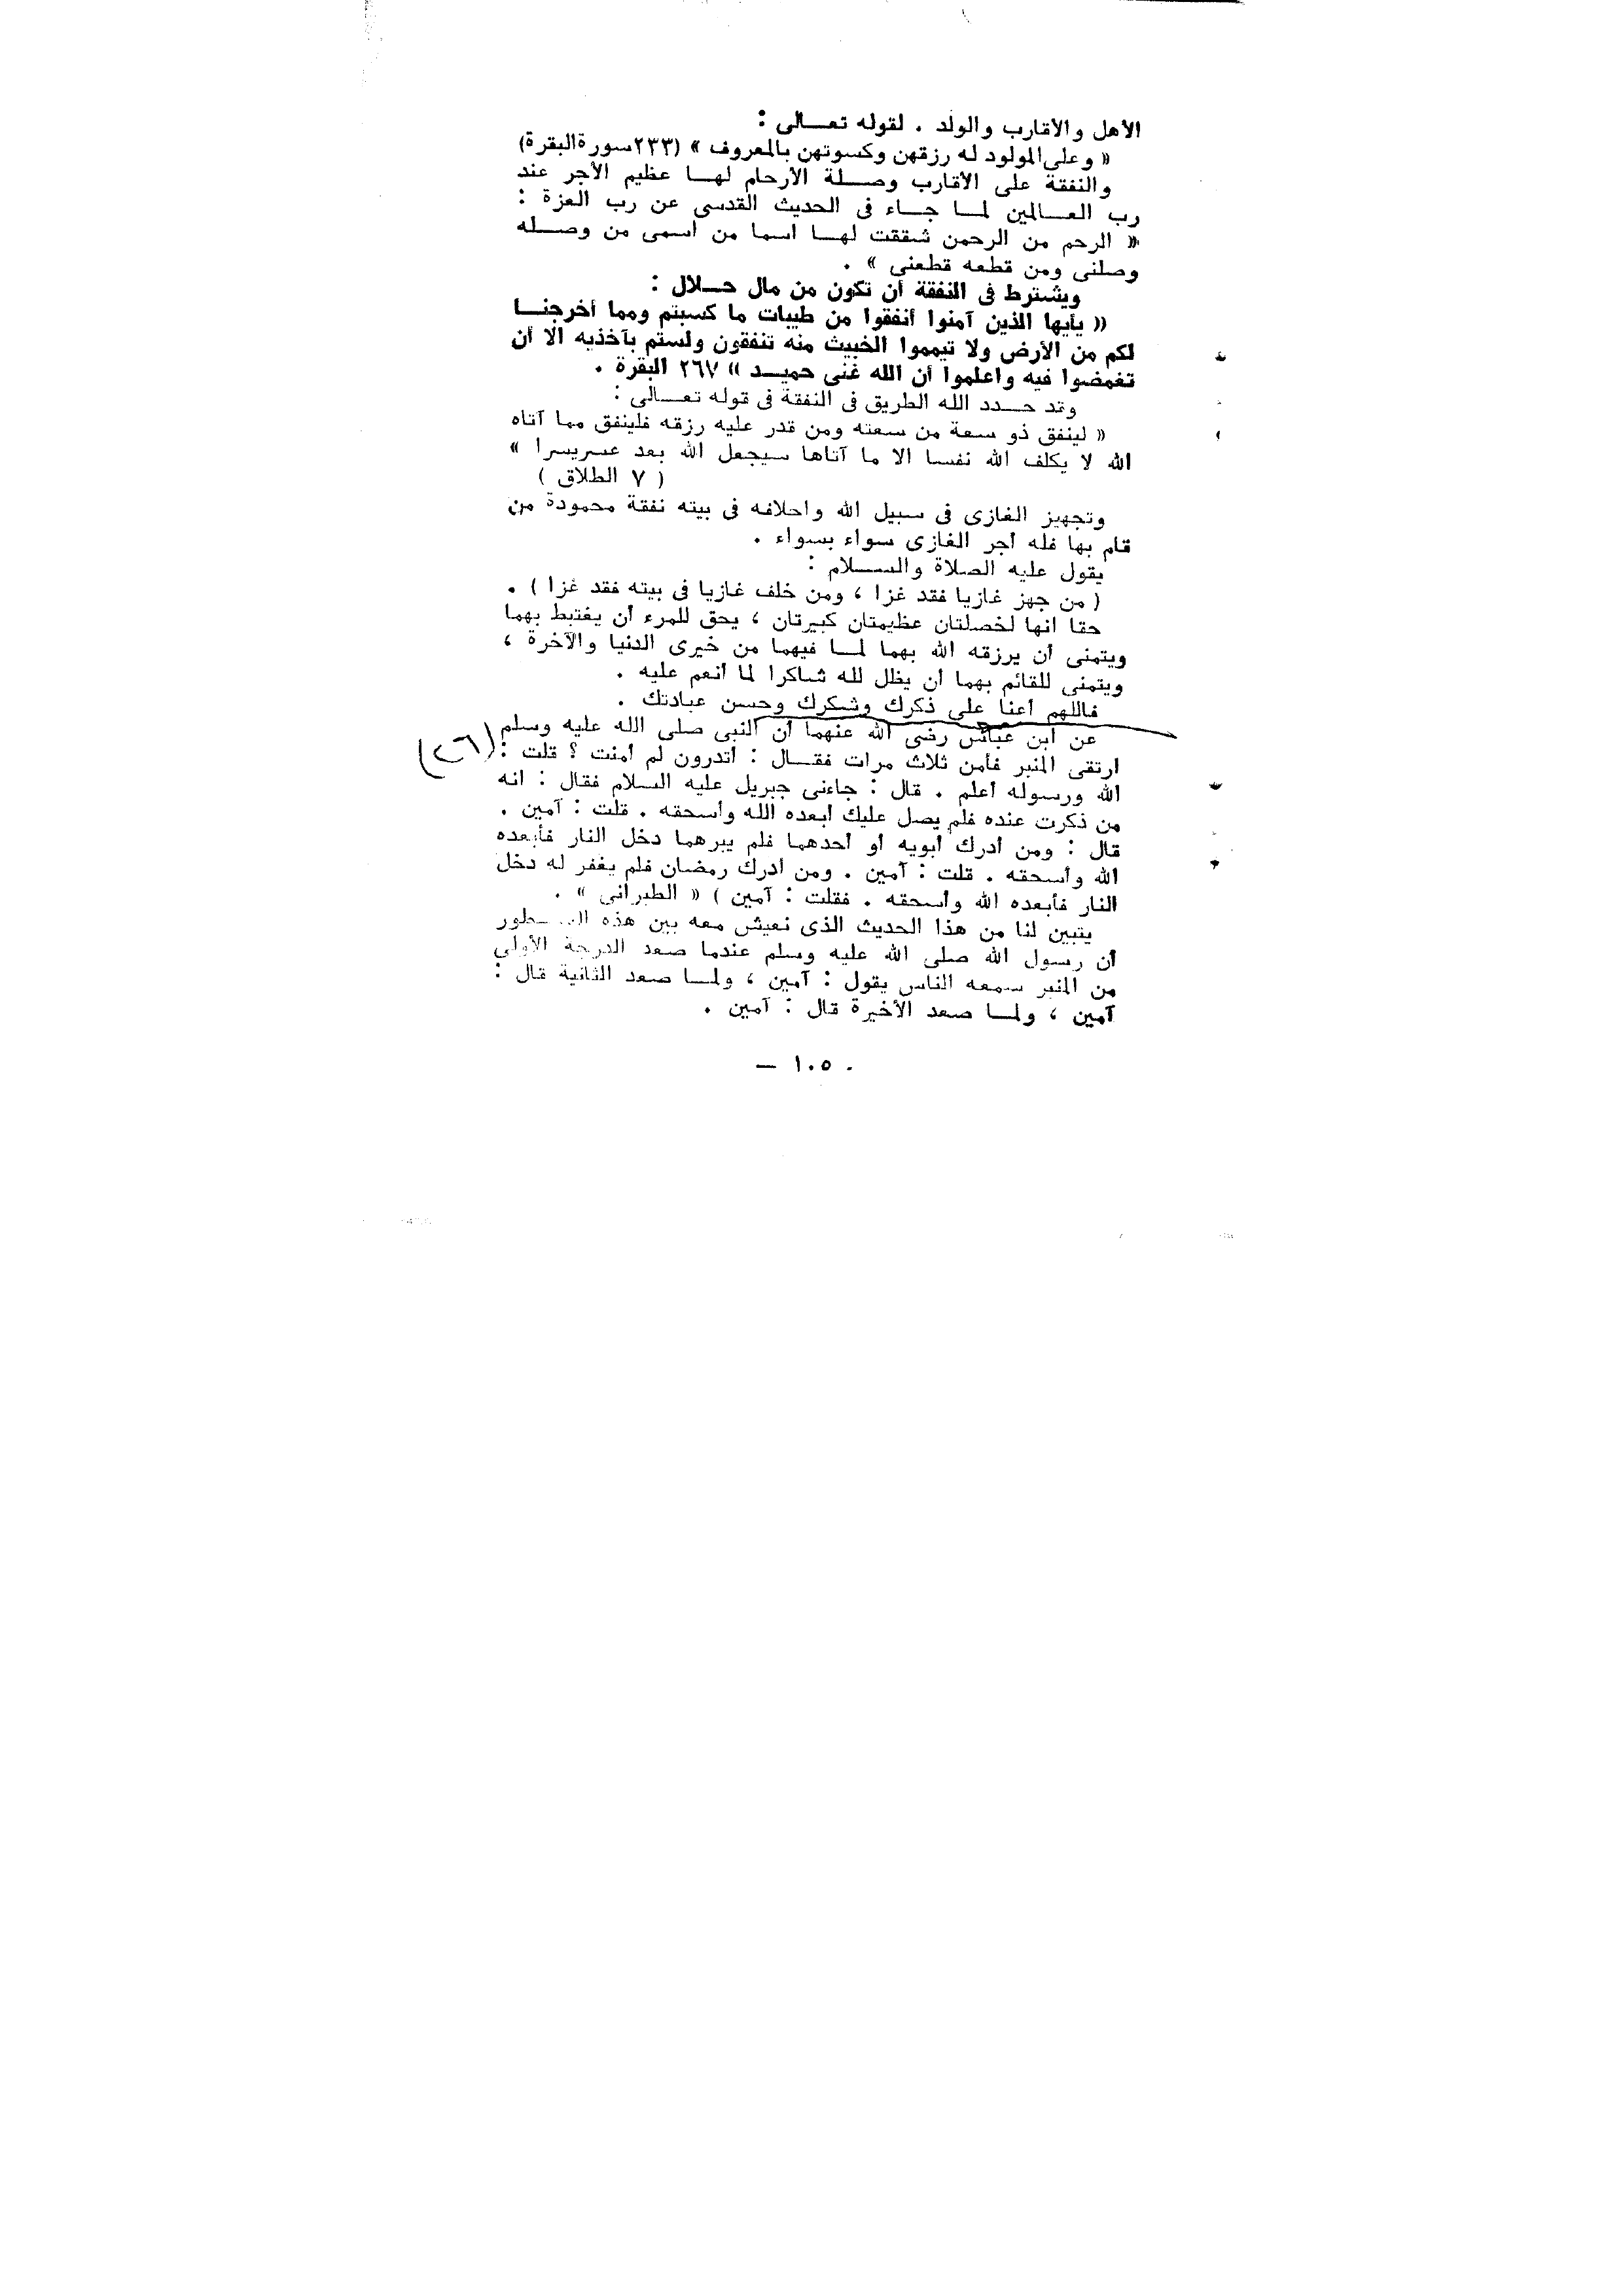 الأهل والأقارب والولد . لقوله تعالى :
« وعلى المولود له رزقهن وكسوتهن بالمعروف » (٢٣٣ سورة البقرة)
والنفقة على الأقارب وصلة الأرحام لها عظيم الأجر عند
رب العالمين لما جاء فى الحديث القدسى عن رب العزة :
« الرحم من الرحمن شققت لها اسما من اسمى من وصله
وصلنى ومن قطعه قطعنى » .
ويشترط فى النفقة أن تكون من مال حلال :
« يأيها الذين آمنوا أنفقوا من طيبات ما كسبتم ومما أخرجنا
لكم من الأرض ولا تيمموا الخبيث منه تنفقون ولستم بآخذيه الا أن
تغمضوا فيه واعلموا أن الله غنى حميد » ٢٦٧ البقرة .
وقد حدد الله الطريق فى النفقة فى قوله تعالى :
« لينفق ذو سعة من سعته ومن قدر عليه رزقه فلينفق مما آتاه
الله لا يكلف الله نفسا الا ما آتاها سيجعل الله بعد عسر يسرا »
( ٧ الطلاق )
وتجهيز الغازى فى سبيل الله واخلافه فى بيته نفقة محمودة من
قام بها فله أجر الغازى سواء بسواء .
يقول عليه الصلاة والسلام :
( من جهز غازيا فقد غزا ، ومن خلف غازيا فى بيته فقد غزا ) .
حقا انها لخصلتان عظيمتان كبيرتان ، يحق للمرء أن يغتبط بهما
ويتمنى أن يرزقه الله بهما لما فيهما من خيرى الدنيا والآخرة ،
ويتمنى للقائم بهما أن يظل لله شاكرا لما أنعم عليه .
فاللهم أعنا على ذكرك وشكرك وحسن عبادتك .
عن ابن عباس رضى الله عنهما أن النبى صلى الله عليه وسلم
(٢٦)
ارتقى المنبر فأمن ثلاث مرات فقال : أتدرون لم أمنت ؟ قلت :
الله ورسوله أعلم . قال : جاءنى جبريل عليه السلام فقال : انه
من ذكرت عنده فلم يصل عليك أبعده الله وأسحقه . قلت : آمين .
قال : ومن أدرك أبويه أو أحدهما فلم يبرهما دخل النار فأبعده
الله وأسحقه . قلت : آمين . ومن أدرك رمضان فلم يغفر له دخل
النار فأبعده الله وأسحقه . فقلت : آمين ) « الطبرانى » .
يتبين لنا من هذا الحديث الذى نعيش معه بين هذه السطور
أن رسول الله صلى الله عليه وسلم عندما صعد الدرجة الأولى
من المنبر سمعه الناس يقول : آمين ، ولما صعد الثانية قال :
آمين ، ولما صعد الأخيرة قال : آمين .
. ١٠٥ —